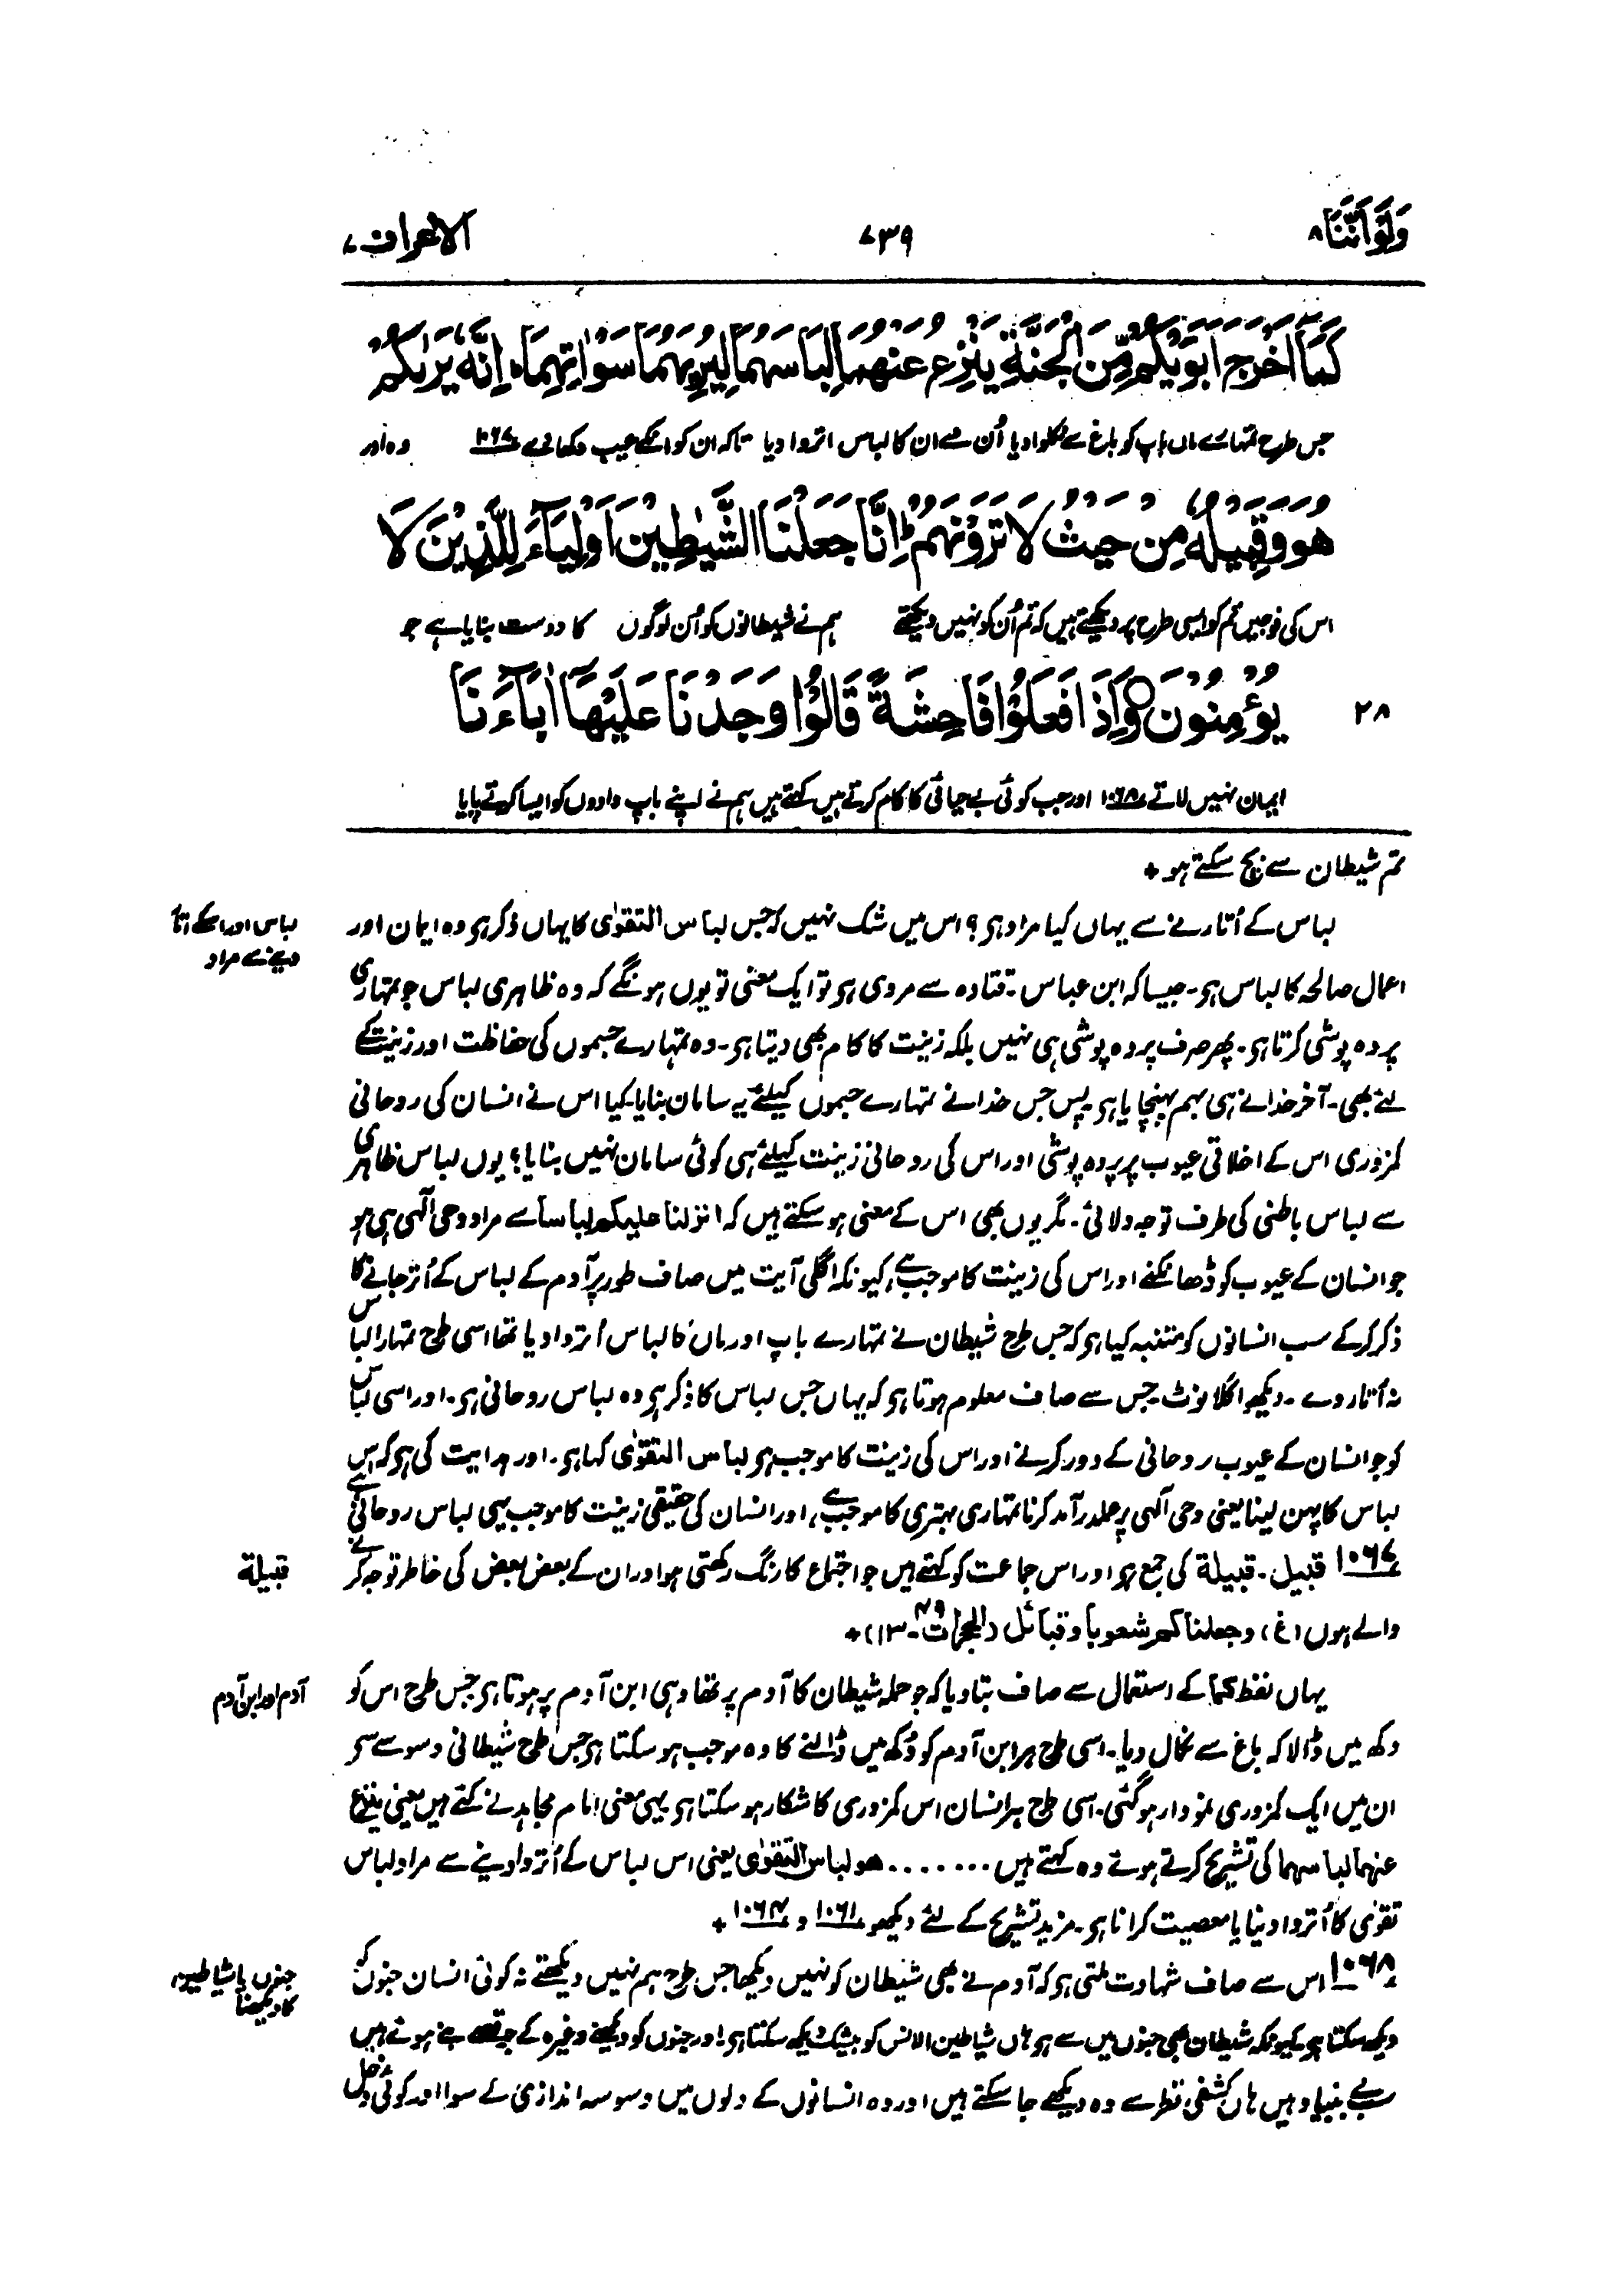 ولو اننا ۸
۷۳۹
الاعراف ۷
كَمَآ اَخْرَجَ اَبَوَيْكُمْ مِّنَ الْجَنَّةِ يَنْزِعُ عَنْهُمَا لِبَاسَهُمَا لِيُرِيَهُمَا سَوْاٰتِهِمَا ؕ اِنَّهٗ يَرٰىكُمْ
جس طرح تمہارے ماں باپ کو باغ سے نکلوا دیا اُن سے ان کا لباس اتروا دیا تاکہ ان کو انکے عیب دکھائے ۱۰۶۷ وہ اور
هُوَ وَقَبِيْلُهٗ مِنْ حَيْثُ لَا تَرَوْنَهُمْ ؕ اِنَّا جَعَلْنَا الشَّيٰطِيْنَ اَوْلِيَآءَ لِلَّذِيْنَ لَا
اس کی فوجیں تم کو ایسی طرح پر دیکھتے ہیں کہ تم اُن کو نہیں دیکھتے ہم نے شیطانوں کو اُن لوگوں کا دوست بنایا ہے جو
۲۸
يُؤْمِنُوْنَ ۝ وَاِذَا فَعَلُوْا فَاحِشَةً قَالُوْا وَجَدْنَا عَلَيْهَآ اٰبَآءَنَا
ایمان نہیں لاتے ۱۰۶۸ اور جب کوئی بے حیائی کا کام کرتے ہیں کہتے ہیں ہم نے اپنے باپ دادوں کو ایسا کرتے پایا
تم شیطان سے بچ سکتے ہو +
لباس اور اسکے اتا
دینے سے مراد
لباس کے اُتارنے سے یہاں کیا مراد ہی؟ اس میں شک نہیں کہ جس لباس التقوٰی کا یہاں ذکر ہی وہ ایمان اور
اعمال صالحہ کا لباس ہی۔ جیسا کہ ابن عباس۔ قتادہ سے مروی ہی تو ایک معنی تو یوں ہونگے کہ وہ ظاہری لباس جو تمہاری
پردہ پوشی کرتا ہی۔ پھر صرف پردہ پوشی ہی نہیں بلکہ زینت کا کام بھی دیتا ہی۔ وہ تمہارے جسموں کی حفاظت اور زینت کے
لئے بھی۔ آخر خدا نے ہی بہم پہنچایا ہی۔ پس جس خدا نے تمہارے جسموں کیلئے یہ سامان بنایا۔ کیا اس نے انسان کی روحانی
کمزوری اس کے اخلاقی عیوب پر پردہ پوشی اور اس کی روحانی زینت کیلئے ہی کوئی سامان نہیں بنایا؟ یوں لباس ظاہری
سے لباس باطنی کی طرف توجہ دلائی۔ مگر یوں بھی اس کے معنی ہو سکتے ہیں کہ انزلنا علیکم لباساً سے مراد وحی الٰہی ہی ہو
جو انسان کے عیوب کو ڈھانکنے اور اس کی زینت کا موجب ہے، کیونکہ اگلی آیت میں صاف طور پر آدم کے لباس کے اُتر جانے کا
ذکر کرکے سب انسانوں کو متنبہ کیا ہی کہ جس طرح شیطان نے تمہارے باپ اور ماں کا لباس اُتروا دیا تھا اسی طرح تمہارا لباس
نہ اُتار دے۔ دیکھو اگلا نوٹ۔ جس سے صاف معلوم ہوتا ہی کہ یہاں جس لباس کا ذکر ہی وہ لباس روحانی ہی۔ اور اسی لباس
کو جو انسان کے عیوب روحانی کے دور کرنے اور اس کی زینت کا موجب ہی لباس التقوٰی کہا ہی۔ اور ہدایت کی ہی کہ اس
لباس کا پہن لینا یعنی وحی الٰہی پر عملدرآمد کرنا تمہاری بہتری کا موجب ہے، اور انسان کی حقیقی زینت کا موجب یہی لباس روحانی ہے
قبیلة
۱۰۶۷ قبیل۔ قبیلة کی جمع ہی اور اس جماعت کو کہتے ہیں جو اجتماع کا رنگ رکھتی ہو اور ان کے بعض بعض کی خاطر توجہ کرنے
والے ہوں (غ) وجعلناکم شعوبا وقبائل (الحجرات ۴۹-۱۳) +
آدم اور ابن آدم
یہاں لفظ کما کے استعمال سے صاف بتا دیا کہ جو حملہ شیطان کا آدم پر تھا وہی ابن آدم پر ہوتا ہی جس طرح اس کو
دکھ میں ڈالا کہ باغ سے نکال دیا۔ اسی طرح ہر ابن آدم کو دُکھ میں ڈالنے کا وہ موجب ہو سکتا ہی جس طرح شیطانی وسوسے سے
ان میں ایک کمزوری نمودار ہوگئی۔ اسی طرح ہر انسان اس کمزوری کا شکار ہو سکتا ہی یہی معنی امام مجاہد نے کئے ہیں یعنی ینزع
عنہما لباسہما کی تشریح کرتے ہوئے وہ کہتے ہیں ....... ھو لباس التقوٰی یعنی اس لباس کے اُتروا دینے سے مراد لباس
تقوٰی کا اُتروا دینا یا معصیت کرانا ہی۔ مزید تشریح کے لئے دیکھو ۱۰۶۱ و ۱۰۶۴ +
جنوں یا شیاطین
کا دیکھنا
۱۰۶۸ اس سے صاف شہادت ملتی ہی کہ آدم نے بھی شیطان کو نہیں دیکھا جس طرح ہم نہیں دیکھتے نہ کوئی انسان جنوں کو
دیکھ سکتا ہی کیونکہ شیطان بھی جنوں میں سے ہی ہاں شیاطین الانس کو بیشک دیکھ سکتا ہی اور جنوں کو دیکھنے وغیرہ کے جو قصے بنے ہوئے ہیں
سب بے بنیاد ہیں ہاں کشفی نظر سے وہ دیکھے جا سکتے ہیں اور وہ انسانوں کے دلوں میں وسوسہ اندازی کے سوا اور کوئی دخل